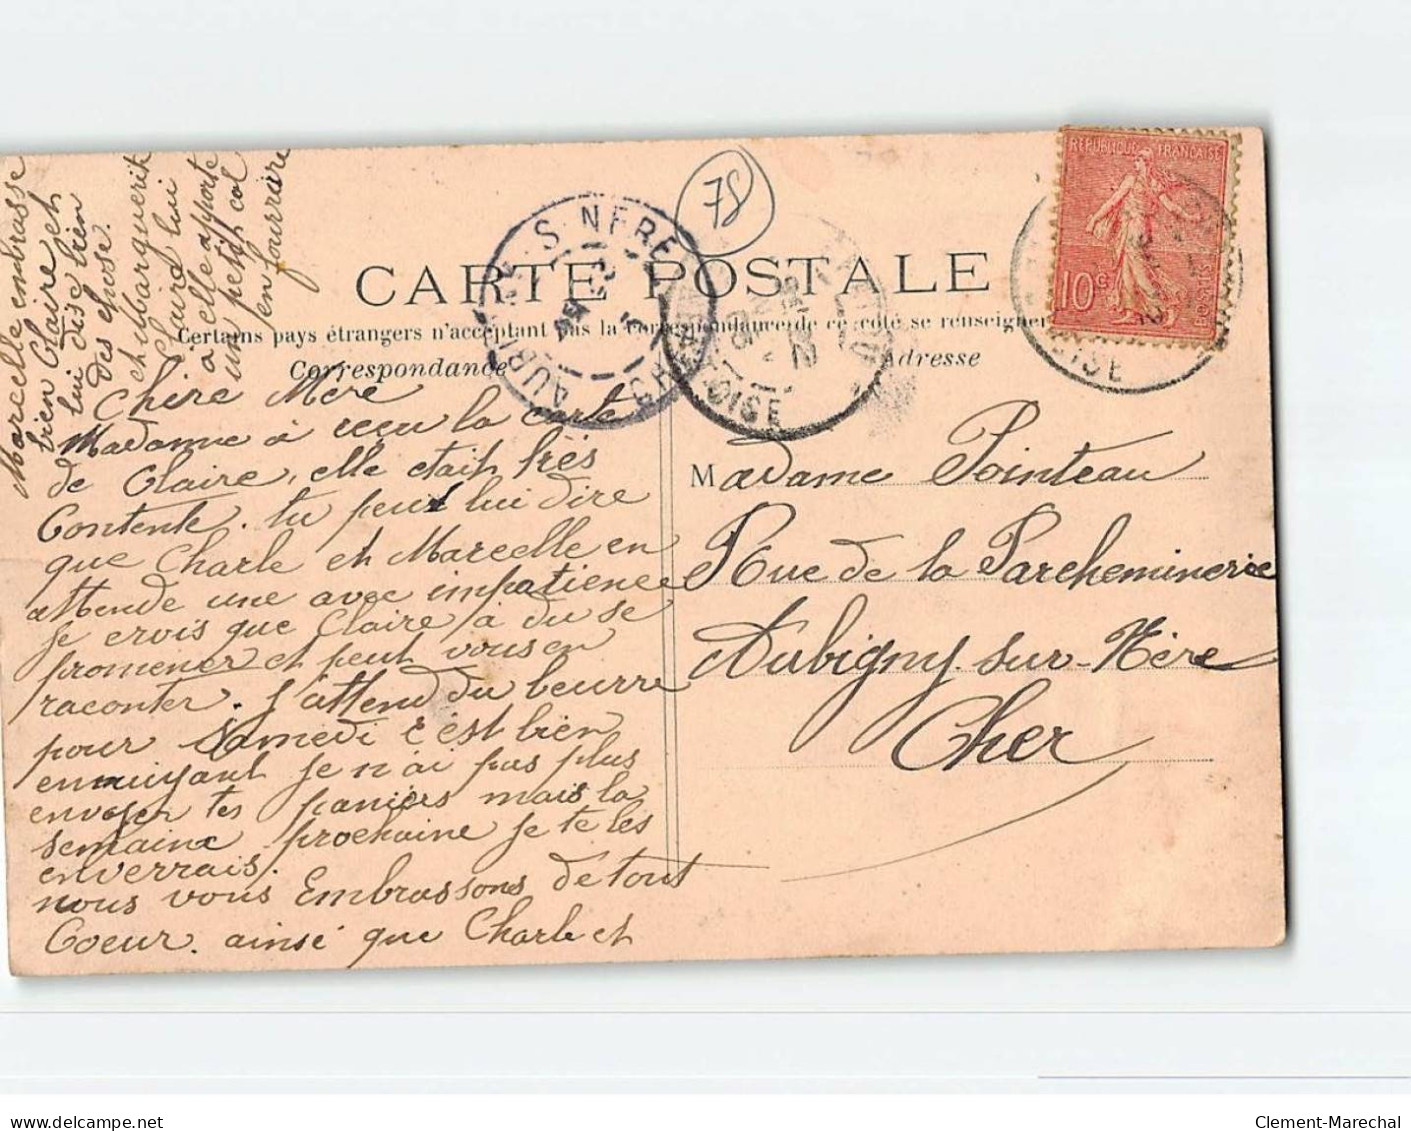 CARTE POSTALE
Certains pays étrangers n'acceptant pas la correspondance de ce côté se renseigner
Correspondance
Adresse
REPUBLIQUE FRANÇAISE
10 c
POSTES
75
AUBIGNY-S-NERE
CHER
OISE
OISE
Chère Mère
Madame à reçu la carte
de Claire, elle était très
Contente. tu peux lui dire
que Charle et Marcelle en
attende une avec impatience
Je crois que Claire à du se
promener et peut vous en
raconter. J'attend du beurre
pour Samedi c'est bien
ennuyant je n'ai pas plus
envoyer tes paniers mais la
semaine prochaine je te les
enverrais.
nous vous Embrassons de tout
Coeur. ainsi que Charle et
Marcelle embrasse
bien Claire et
lui dise bien
des chose.
Claire lui
à elle apporte
un petit col
en fourrure
Madame Pointeau
Rue de la Parcheminerie
Aubigny-sur-Nère
Cher
Clement-Marechal
www.delcampe.net